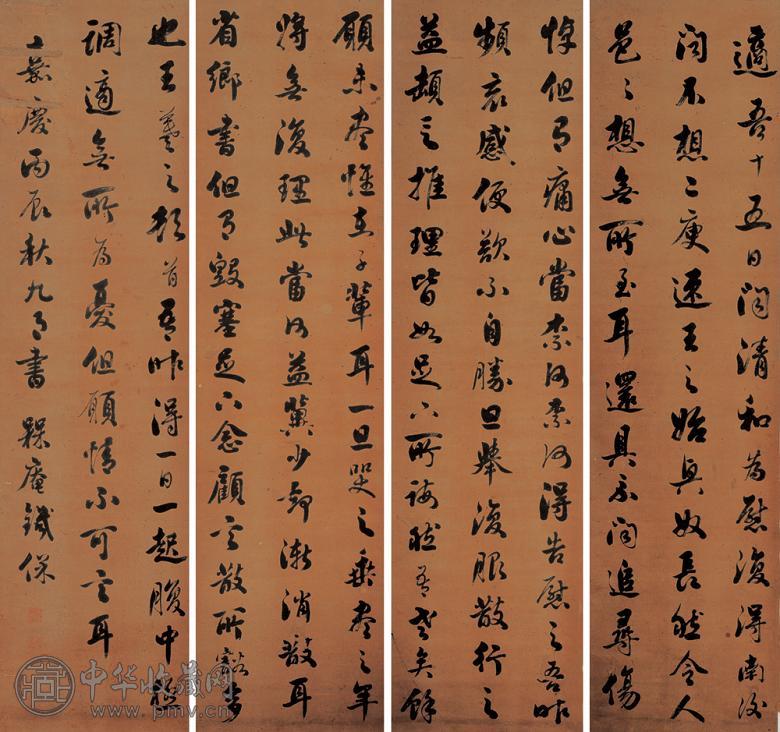 適吾十五日問清和為慰復得南後
問不想二庾速王之始與奴長然令人
邑〻想無所至耳還具示問追尋傷
悼但有痛心當奈何奈何得告慰之吾昨
頻哀感便欲不自勝旦舉復服散行之
益頓之推理皆如足下所誨然吾老矣餘
願未盡惟在子輩耳一旦哭之垂盡之年
將無復理此當何益冀少卻漸消散耳
省鄉書但有毀塞足下念顧言散所豁多
也王羲之頓首吾昨得一日一起腹中極
調適無所為憂但顧情不可言耳
嘉慶丙辰秋九月書 楳庵鐵保
中华收藏网
www.pmv.cn